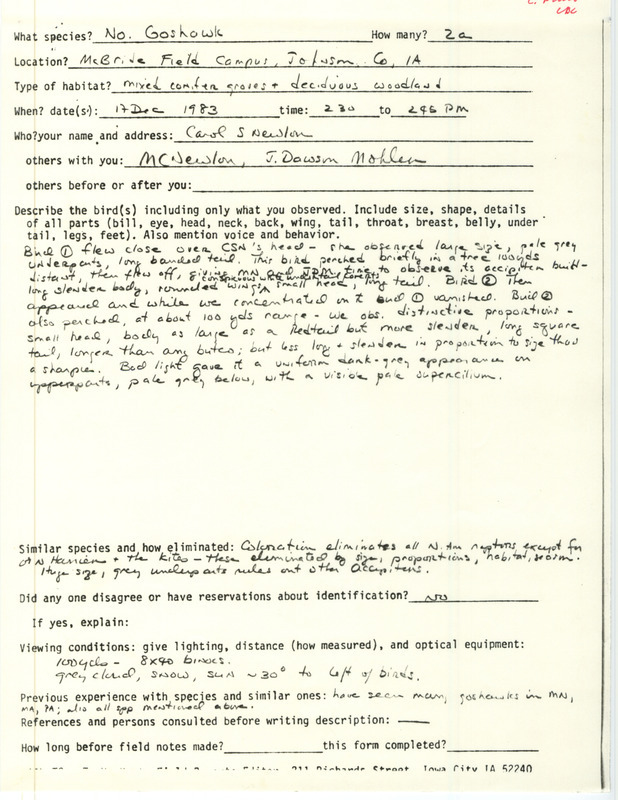 CDC
What species? No. Goshawk How many? 2a
Location? McBride Field Campus, Johnson Co, IA
Type of habitat? mixed conifer groves + deciduous woodland
When? date(s): 17 Dec 1983 time: 230 to 245 PM
Who? your name and address: Carol S Newlon
others with you: MC Newlon, J. Dawson Mohler
others before or after you:
Describe the bird(s) including only what you observed. Include size, shape, details
of all parts (bill, eye, head, neck, back, wing, tail, throat, breast, belly, under
tail, legs, feet). Also mention voice and behavior.
Bird ① flew close over CSN's head - she observed large size, pale grey
underparts, long banded tail. This bird perched briefly in a tree 100yds
distant, then flew off, giving MN and JDM time to observe its accipitter built-
conspicuous white undertail coverts
long slender body, rounded wings, small head, long tail. Bird ② then
appeared and while we concentrated on it bird ① vanished. Bird ②
also perched, at about 100 yds range - we obs. distinctive proportions -
small head, body as large as a Redtail but more slender, long square
tail, longer than any buteo; but less long + slender in proportion to size than
a sharpie. Bad light gave it a uniform dark-grey appearance on
upperparts, pale grey below, with a visible pale supercilium.
Similar species and how eliminated: Coloration eliminates all N. Am raptors except for
♂ N Harrier + the kites - these eliminated by size, proportions, habitat, season.
Huge size, grey underparts rules out other Accipiters.
Did any one disagree or have reservations about identification? NO
If yes, explain:
Viewing conditions: give lighting, distance (how measured), and optical equipment:
100yds - 8x40 binocs.
grey cloud, snow, sun ~30° to left of birds.
Previous experience with species and similar ones: have seen many goshawks in MN,
MA, PA; also all spp mentioned above.
References and persons consulted before writing description: —
How long before field notes made? this form completed?
Iowa City IA 52240